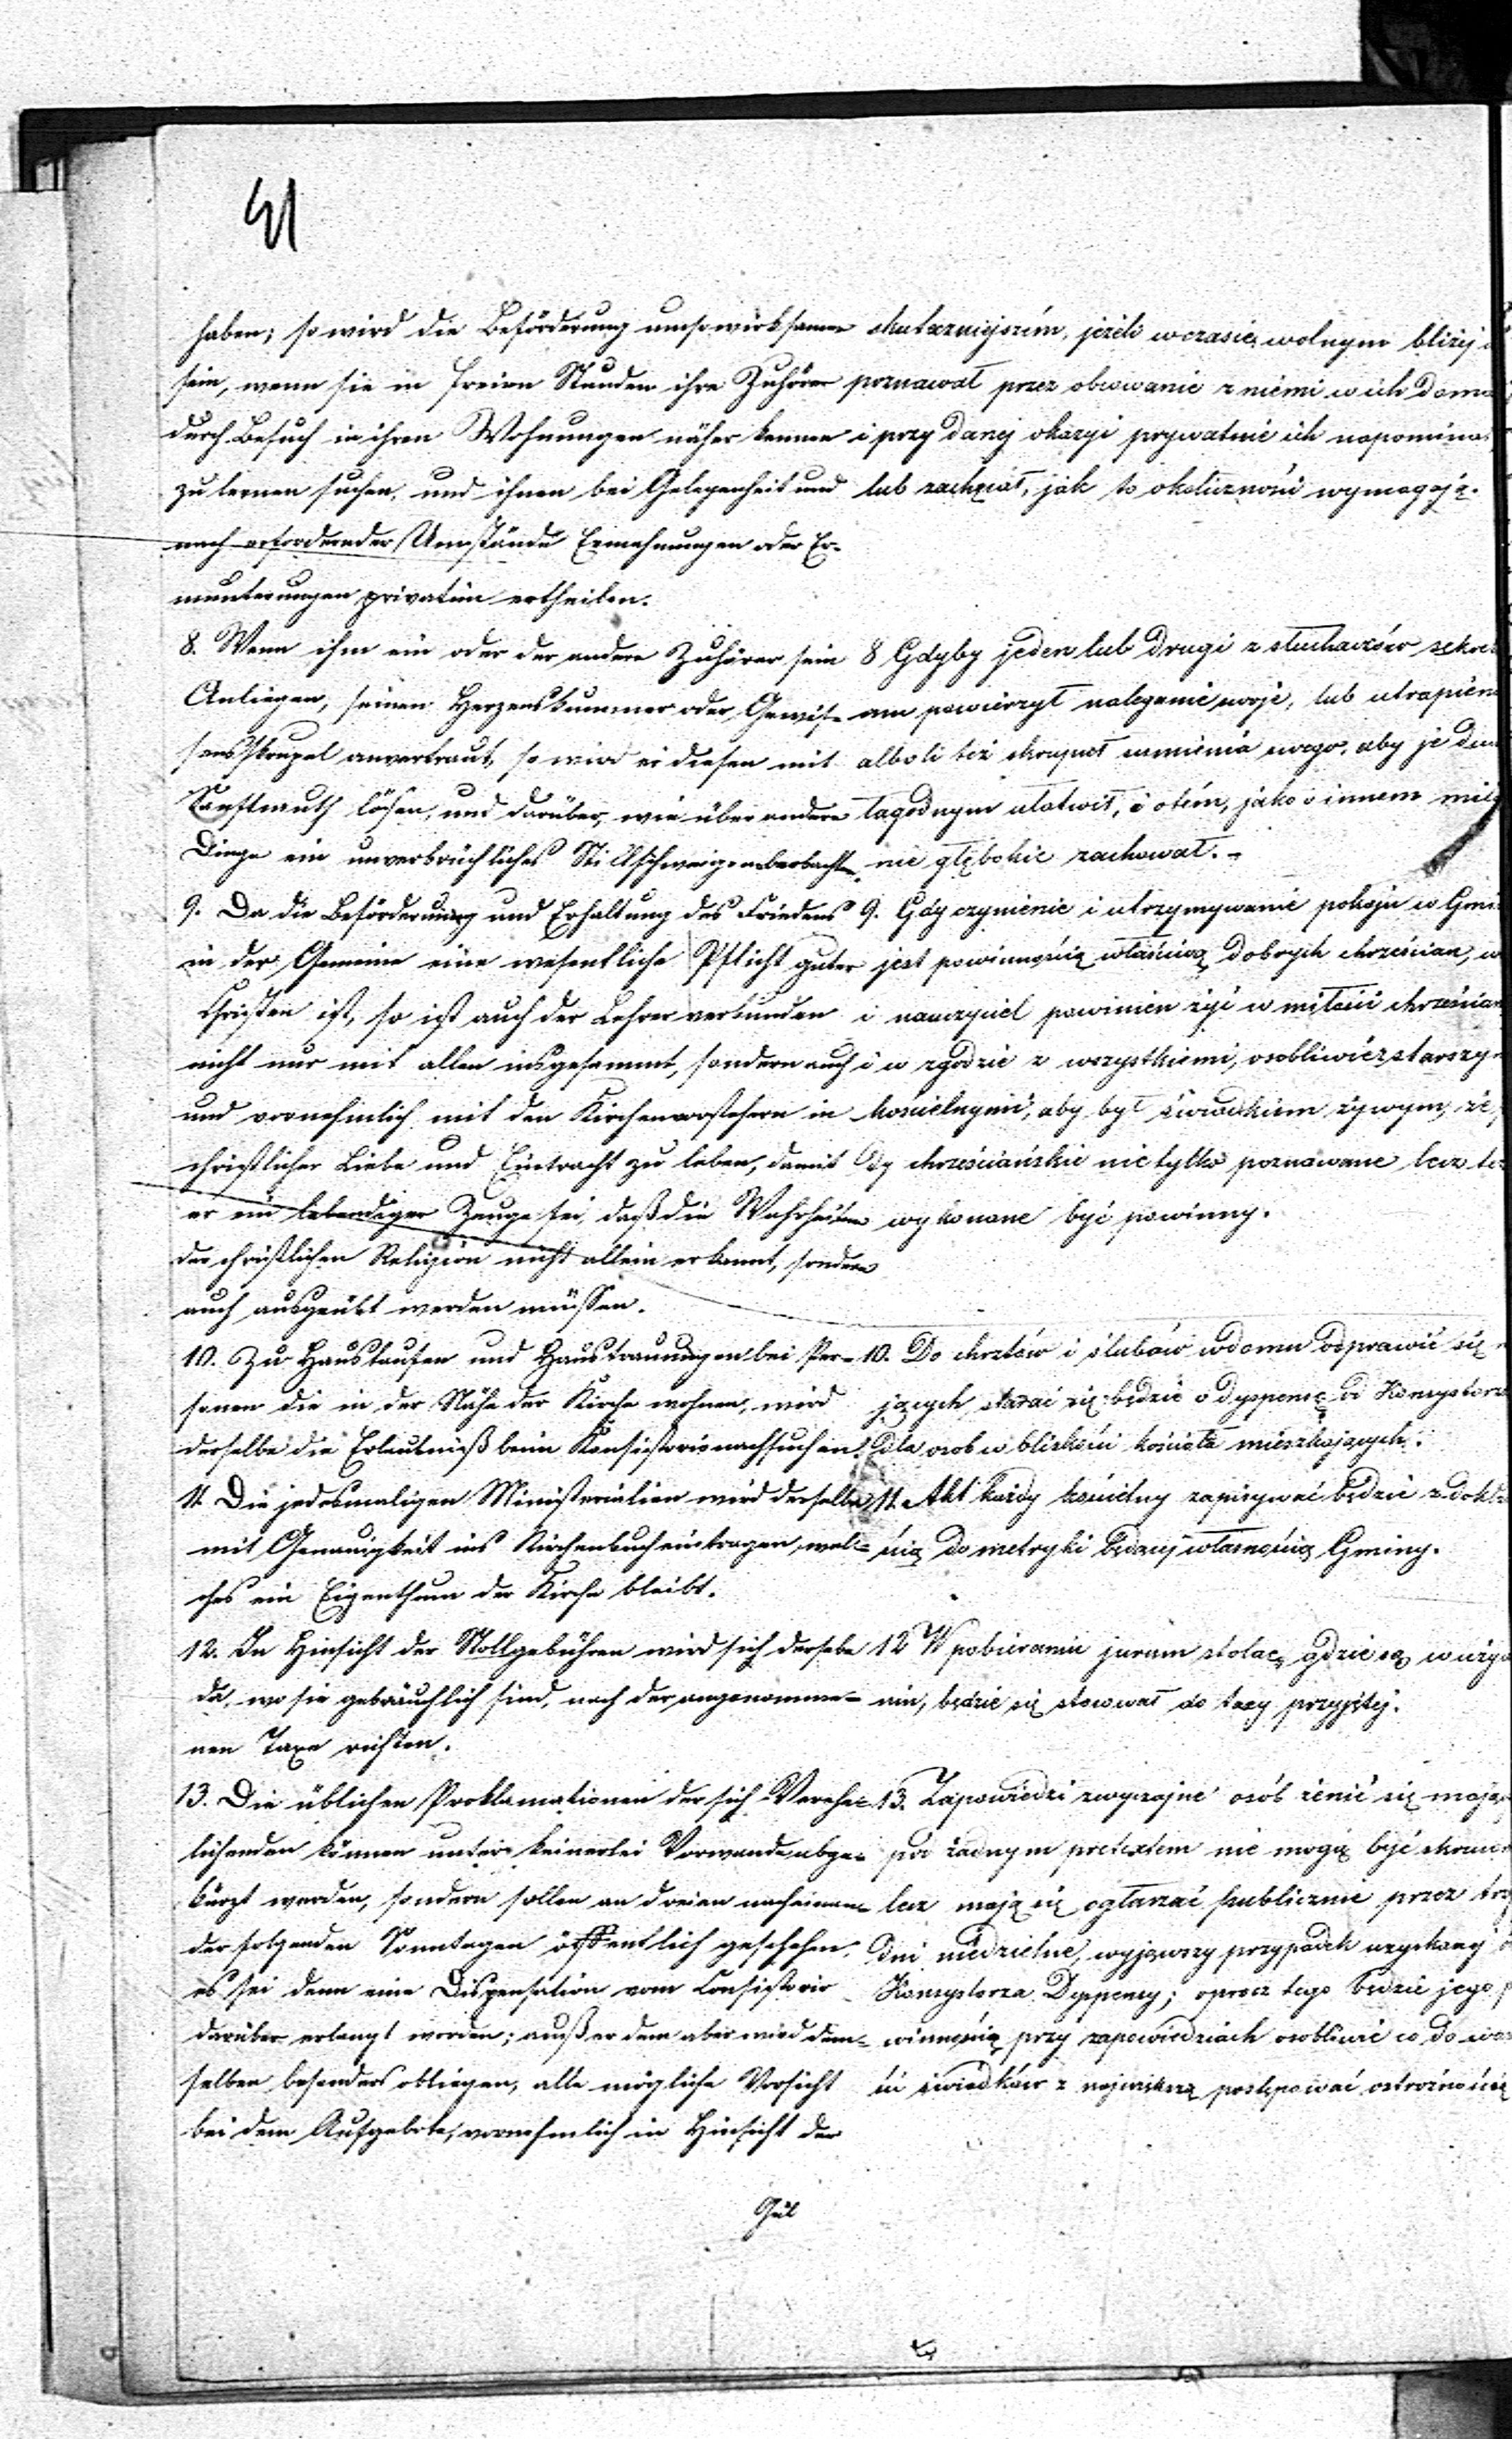 41
haben; so wird die Beförderung umso wirksamer
sein, wenn sie in freien Stunden ihre Zuhörer
durch Besuch in ihren Wohnungen näher kennen
zu lernen suchen, und ihnen bei Gelegenheit und
nach erfordernder Umstände Ermahnungen oder Er-
munterungen privatim ertheilen.
8. Wenn ihm ein oder der andere Zuhörer sein
Anliegen, seinen Herzenskummer oder Gewis-
sensskrupel anvertraut, so wird er diesen mit
Sanftmuth lösen, und darüber, wie über andere
Dinge ein unverbrüchliches Stillschweigen beobachten
9. Da die Beförderung und Erhaltung des Friedens
in der Gemeine eine wesentliche Pflicht guter
Christen ist, so ist auch der Lehrer verbunden
nicht nur mit allen insgesammt, sondern auch
und vornehmlich mit den Kirchenvorstehern in
christlicher Liebe und Eintracht zu leben, damit
er ein lebendiger Zeuge sei, daß die Wahrheiten
der christlichen Religion nicht allein erkannt, sondern
auch ausgeübt werden müssen.
10. Zu Haustaufen und Haustrauungen bei Per-
sonen die in der Nähe der Kirche wohnen, wird
derselbe die Erlaubniß beim Konsistorio nachsuchen.
11. Die jedesmaligen Ministerialien wird derselbe
mit Genauigkeit ins Kirchenbuch eintragen, wel-
ches ein Eigenthum der Kirche bleibt.
12. In Hinsicht der Stollgebühren wird sich derselbe
da, wo sie gebräuchlich sind, nach der angenomme-
nen Taxe richten.
13. Die üblichen Proklamationen der sich Verehe-
lichenden können unter keinerlei Vorwande abge-
kürzt werden, sondern sollen an dreien nacheinan-
der folgenden Sonntagen öffentlich geschehen,
es sei denn eine Dispensation vom Consistorio
darüber erlangt worden; außer dem aber wird dem-
selben besonders obliegen, alle mögliche Vorsicht
bei dem Aufgebote, vornehmlich in Hinsicht der
Gül
skuteczniejszém, jeżeli w czasie wolnym bliżej
poznawał przez obcowanie z niemi w ich
i przy danej okazyi prywatnie ich napominał
lub zachęcał, jak to okoliczności wymagają.
8 Gdyby jeden lub drugi z słuchaczów
powierzył naleganie swoje, lub
alboli też skrupuł sumienia swego, aby je
łagodnym ułatwił, i o tém, jako o innem
nie głębokie zachował.
9. Gdy czynienie i utrzymywanie pokoju w
jest powinnością właściwą dobrych chrześcian,
i nauczyciel powinien żyć w miłości
i w zgodzie z wszystkiemi, osobliwie z
kościelnymi, aby był świadkiem żywym, że
dy chrześciańskie nie tylko poznawane lecz
wykonane być powinny.
10. Do chrztów i ślubów w domu odprawić się
jących starać się będzie o dyspensę od
dla osob w bliskości kościoła mieszkających.
11. Akt każdy kościelny zapisywać będzie z
ścią do metryki będącéj własnością Gminy.
12 W pobieraniu jurium stolae, gdzie są w
niu, będzie się stosował do taxy przyjętej.
13. Zapowiedzi zwyczajne osób żenić się
pod żadnym pretextem nie mogą być
lecz mają się ogłaszać publicznie przez
dni niedzielne, wyjąwszy przypadek uzyskanej
Konsystorza Dyspensy; oprocz tego będzie jego
winnością przy zapowiedziach osobliwie co do
ści świadków z największą postępować ostrożnością